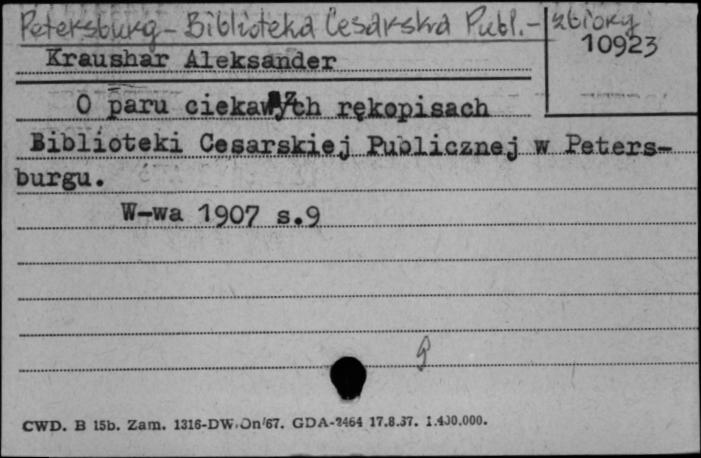 Petersburg - Biblioteka Cesarska Publ. - zbiory
10923
Kraushar Aleksander
O paru ciekawych rękopisach
Biblioteki Cesarskiej Publicznej w Peters-
burgu.
W-wa 1907 s.9
CWD. B 15b. Zam. 1316-DW.On/67. GDA-2464 17.8.67. 1.400.000.